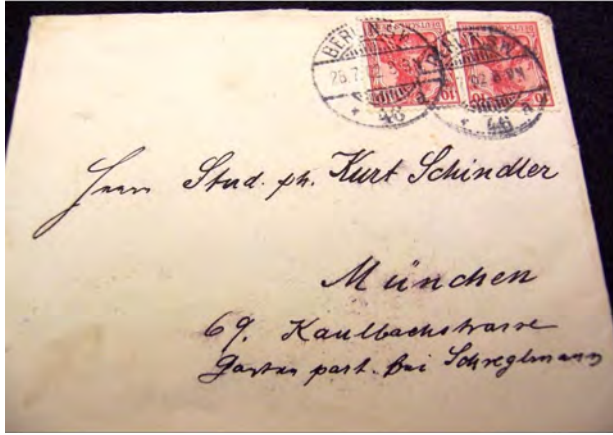 BERLIN S.W.
26.7.02
46 a
02
46 a
10
10
Herrn Stud. ph. Kurt Schindler
München
69. Kaulbachstrasse
Garten part. bei Schreglmann